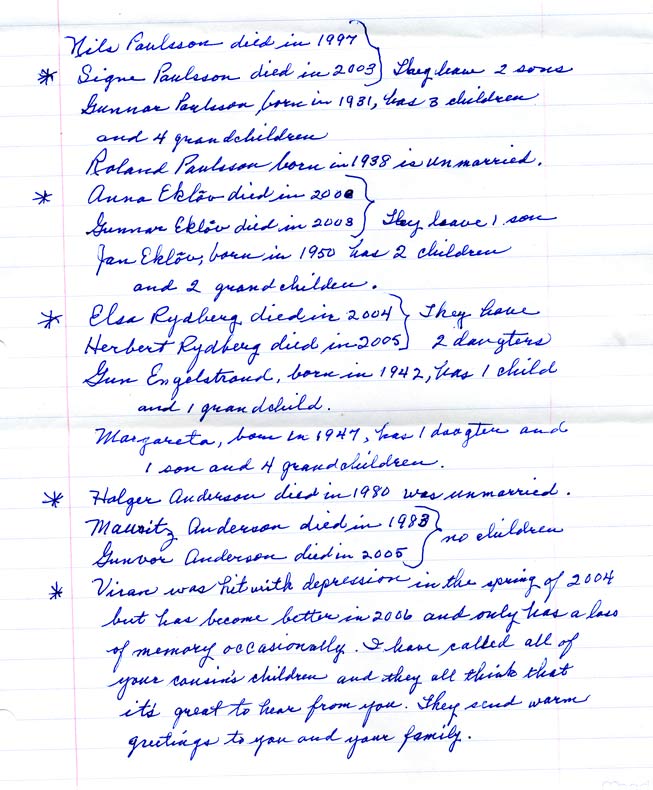 Nils Paulsson died in 1997
* Signe Paulsson died in 2003 } They leave 2 sons
Gunnar Paulsson born in 1931, has 3 children
and 4 grandchildren
Roland Paulsson born in 1938 is unmarried.
* Anna Eklöv died in 2000
Gunnar Eklöv died in 2003 } They leave 1 son
Jan Eklöv, born in 1950 has 2 children
and 2 grandchilden.
* Elsa Rydberg died in 2004 } They have
Herbert Rydberg died in 2005 2 daugters
Gun Engelstrand, born in 1942, has 1 child
and 1 grandchild.
Margareta, born in 1947, has 1 daugter and
1 son and 4 grandchildren.
* Holger Anderson died in 1980 was unmarried.
Mauritz Anderson died in 1983 } no children
Gunvor Anderson died in 2005
* Vivan was hit with depression in the spring of 2004
but has become better in 2006 and only has a loss
of memory occasionally. I have called all of
your cousin's children and they all think that
it's great to hear from you. They send warm
greetings to you and your family.